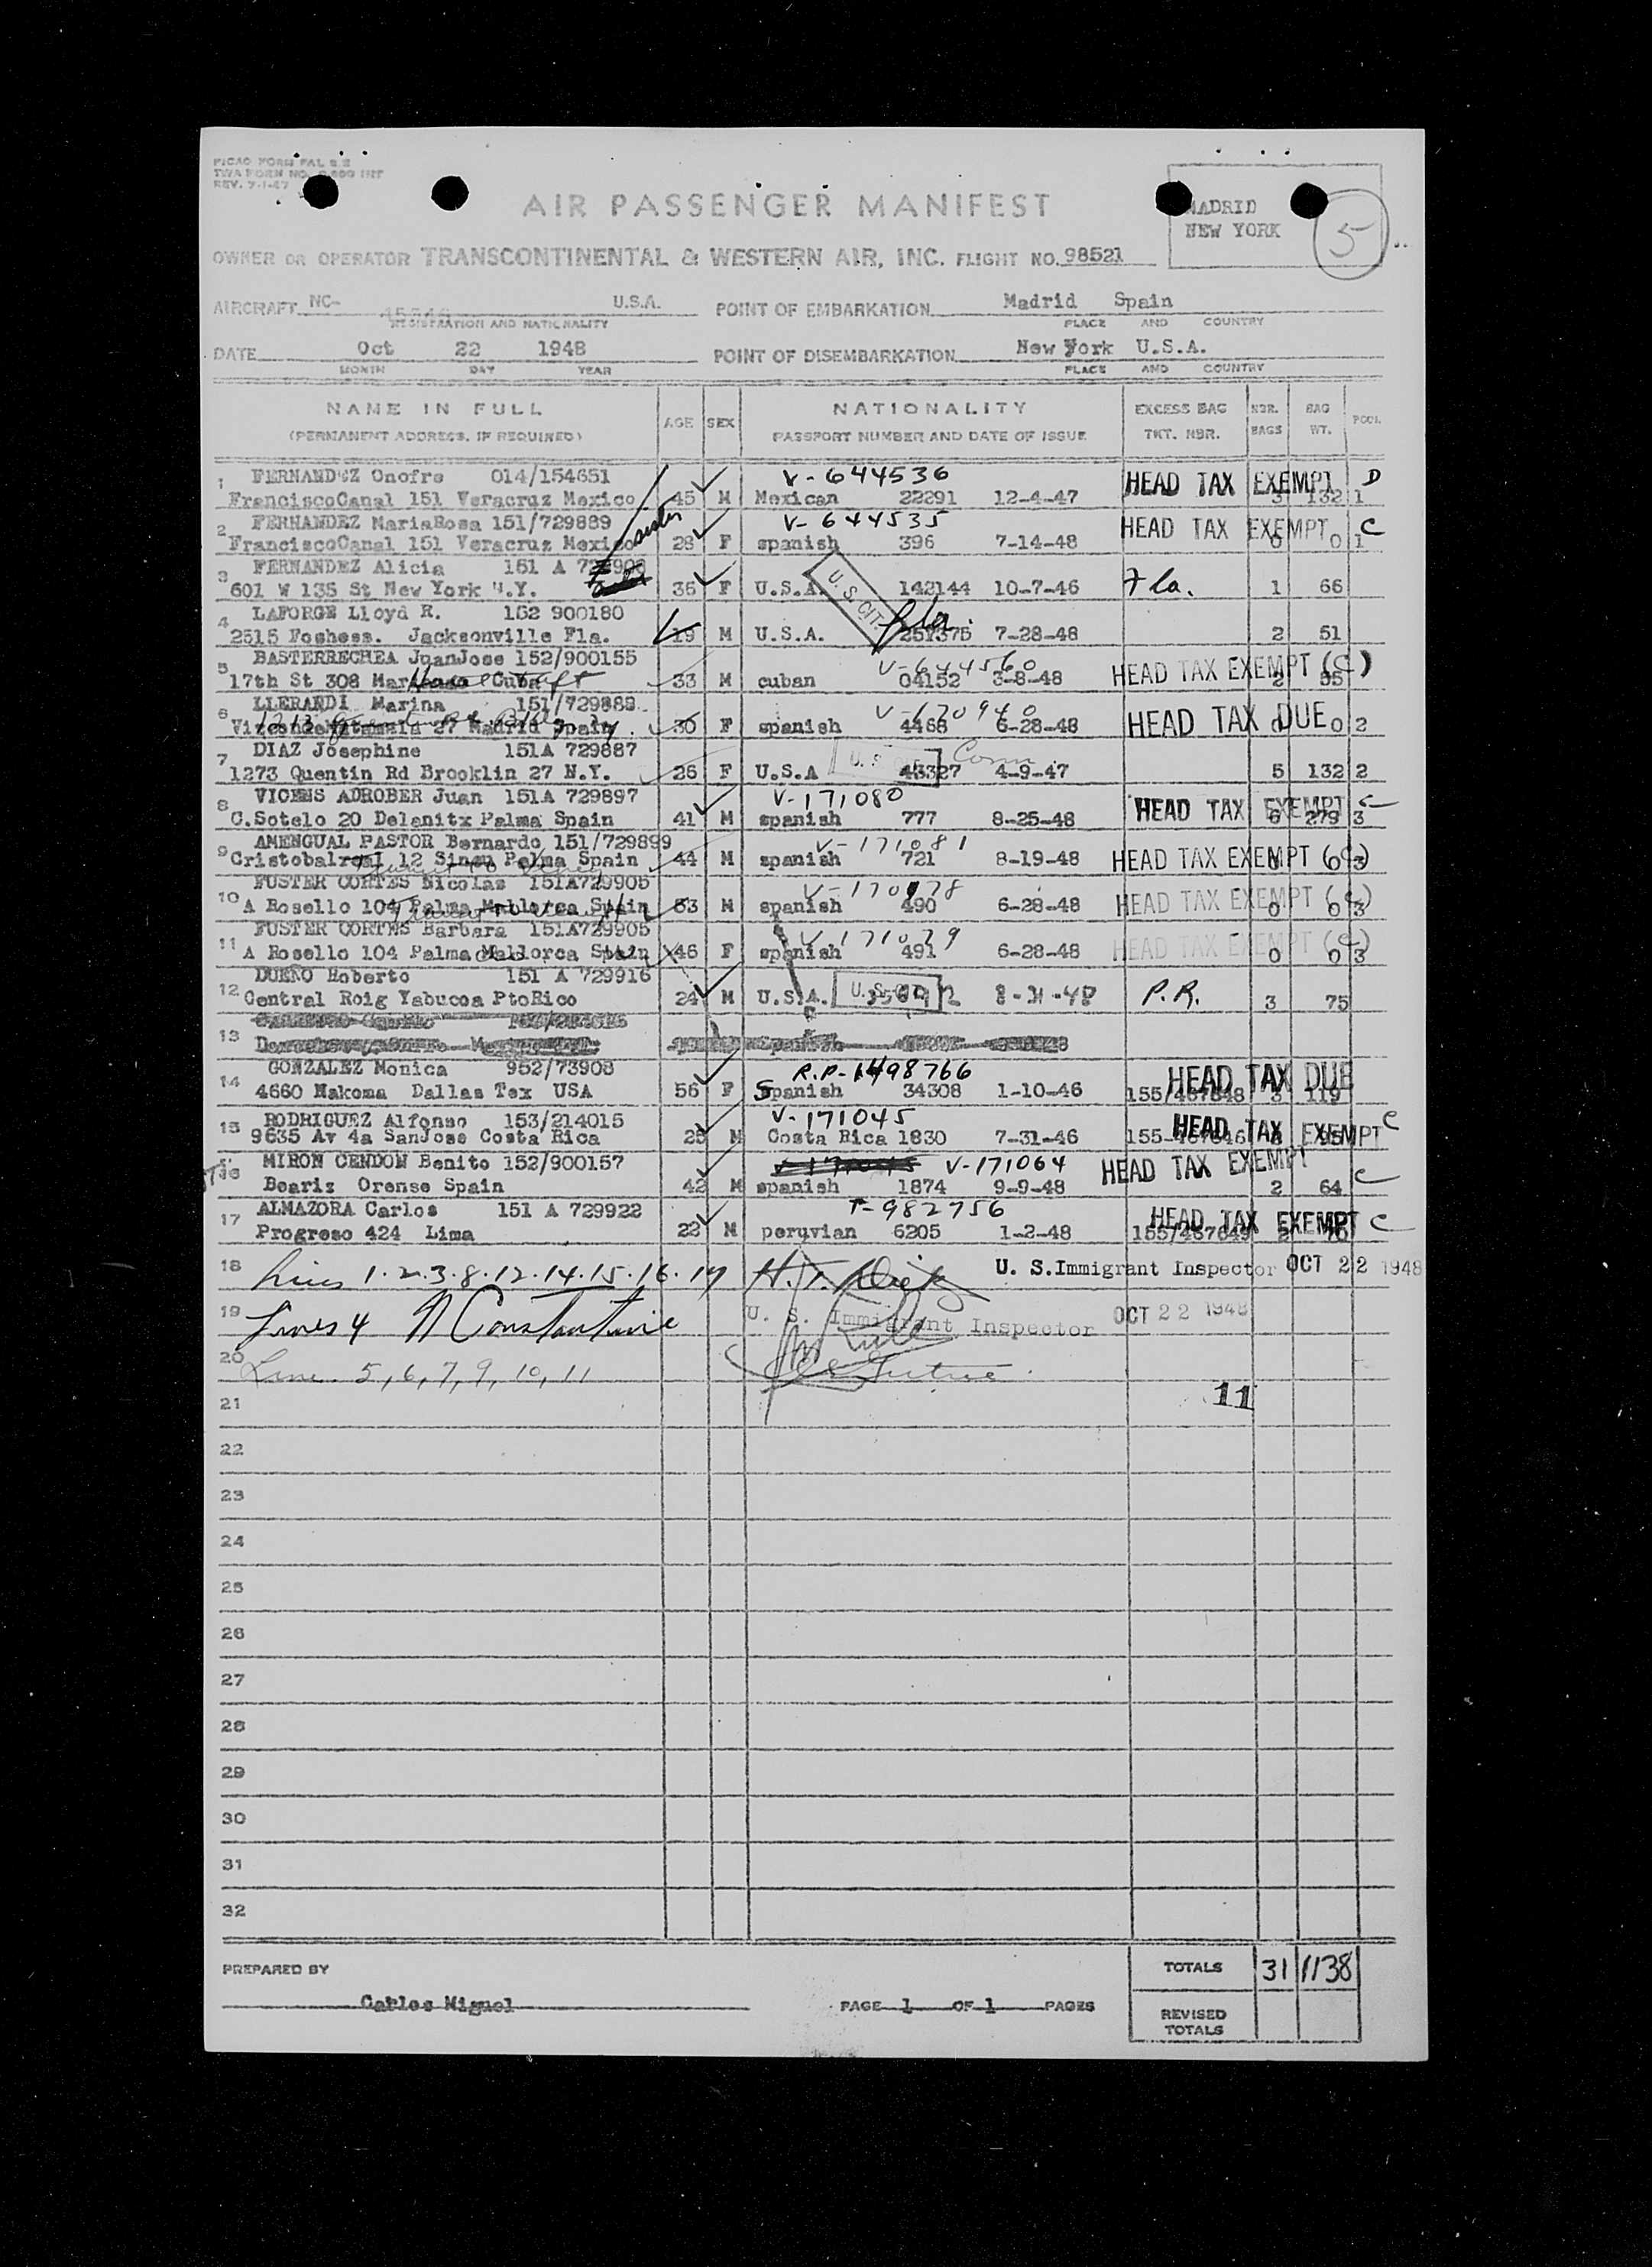 PICAO FORM PAL 2.2
REV. 7-1-47
AIR PASSENGER MANIFEST
MADRID
NEW YORK
5
OWNER OR OPERATOR TRANSCONTINENTAL & WESTERN AIR, INC. FLIGHT NO. 98521
AIRCRAFT NC- U.S.A. POINT OF EMBARKATION Madrid Spain
REGISTRATION AND NATIONALITY PLACE AND COUNTRY
DATE Oct 22 1948 POINT OF DISEMBARKATION New York U.S.A.
MONTH DAY YEAR PLACE AND COUNTRY
NAME IN FULL AGE SEX NATIONALITY EXCESS BAG NBR. BAG POOL
(PERMANENT ADDRESS, IF REQUIRED) PASSPORT NUMBER AND DATE OF ISSUE TKT. NBR. BAGS WT.
1 FERNANDEZ Onofre 014/154651 V-644536 HEAD TAX EXEMPT D
FranciscoCanal 151 Veracruz Mexico 45 M Mexican 22291 12-4-47 3 132 1
2 FERNANDEZ MariaRosa 151/729889 sister V-644535 HEAD TAX EXEMPT C
FranciscoCanal 151 Veracruz Mexico 28 F spanish 396 7-14-48 0 0 1
3 FERNANDEZ Alicia 151 A U.S. CIT.
601 W 135 St New York N.Y. 36 F U.S.A. 142144 10-7-46 Fla. 1 66
4 LAFORGE Lloyd R. 152 900180 Fla.
2515 Foshess. Jacksonville Fla. 19 M U.S.A. 251375 7-28-48 2 51
5 BASTERRECHEA JuanJose 152/900155 V-644560 HEAD TAX EXEMPT (C)
17th St 308 Cuba 33 M cuban 04152 3-8-48 2
6 LLERANDI Marina 151/729888 V-170940 HEAD TAX DUE
27 Madrid Spain 30 F spanish 4468 6-28-48 0 0 2
7 DIAZ Josephine 151A 729887 Conn
1273 Quentin Rd Brooklin 27 N.Y. 26 F U.S.A 43327 4-9-47 5 132 2
8 VICENS ADROBER Juan 151A 729897 V-171080 HEAD TAX EXEMPT C
C.Sotelo 20 Delanitx Palma Spain 41 M spanish 777 8-25-48 6 279 3
9 AMENGUAL PASTOR Bernardo 151/729899 V-171081 HEAD TAX EXEMPT (C)
Cristobalreal 12 Sineu Palma Spain 44 M spanish 721 8-19-48 0 0 3
10 FUSTER CORTES Nicolas 151A729905 HEAD TAX EXEMPT (C)
A Rosello 104 Palma Mallorca Spain 53 M spanish 490 6-28-48 0 0 3
11 FUSTER CORTES Barbara 151A729905 V-171079 HEAD TAX EXEMPT (C)
A Rosello 104 Palma Mallorca Spain 46 F spanish 491 6-28-48 0 0 3
12 DUEÑO Roberto 151 A 729916 U.S. CIT.
Central Roig Yabucoa PtoRico 24 M U.S.A. 8-31-48 P.R. 3 75
13
14 GONZALEZ Monica 952/73908 R.P-1498766 HEAD TAX DUE
4660 Nakoma Dallas Tex USA 56 F Spanish 34308 1-10-46 155/467648 3 119
15 RODRIGUEZ Alfonso 153/214015 V-171045 HEAD TAX EXEMPT C
9635 Av 4a SanJose Costa Rica 25 M Costa Rica 1830 7-31-46 155-467646 95
16 MIRON CENDON Benito 152/900157 V-171064 HEAD TAX EXEMPT C
Beariz Orense Spain 42 M spanish 1874 9-9-48 2 64
17 ALMAZORA Carlos 151 A 729922 T-982756 HEAD TAX EXEMPT C
Progreso 424 Lima 22 M peruvian 6205 1-2-48 155/467649 2 70
18 Lines 1.2.3.8.12.14.15.16.17 U. S.Immigrant Inspector OCT 22 1948
19 Lines 4 N Constantine U. S. Immigrant Inspector OCT 22 1948
20 Line 5, 6, 7, 9, 10, 11
21 11
22
23
24
25
26
27
28
29
30
31
32
PREPARED BY TOTALS 31 1138
Carlos Miguel PAGE 1 OF 1 PAGES
REVISED
TOTALS